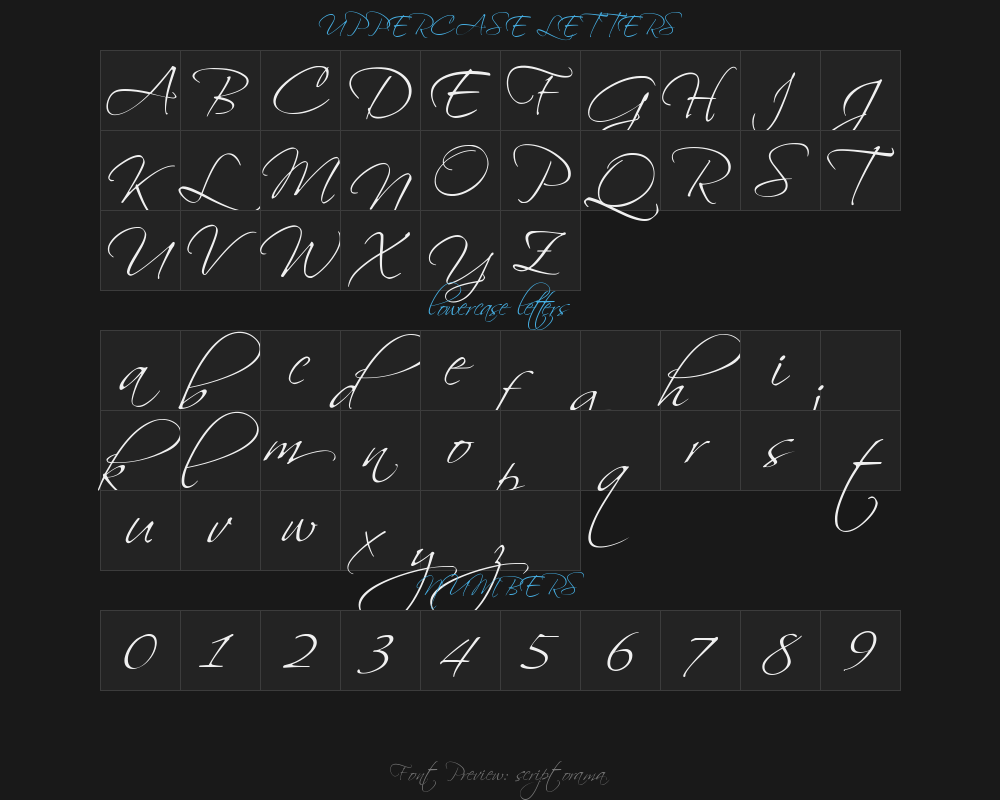 UPPERCASE LETTERS
A B C D E F G H I J
K L M N O P Q R S T
U V W X Y Z
lowercase letters
a b c d e f g h i j
k l m n o p q r s t
u v w x y z
NUMBERS
0 1 2 3 4 5 6 7 8 9
Font Preview: scriptorama